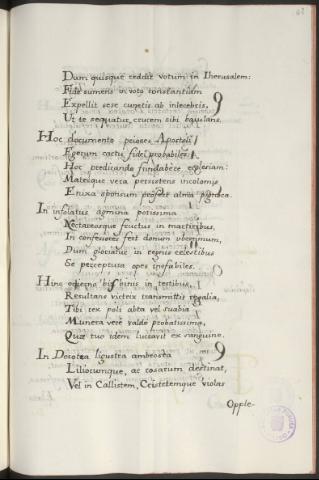 Dum quisque reddit votum in Iherusalem:
Fide sumens in voto constantiam
Expellit sese cunctis ab inlecebris,
Ut te sequatur, crucem sibi baiulans.
Hoc documento priores Apostoli
Egerunt cactu fidei probabiles.
Hoc predicando fundabere eccleriam:
Matrique vera persistens incolomis
Enixa opimum prosert alma pignora.
In infolatus agmina potissima
Nectareosque fructus in mactiribus,
In confessores fert donum uberrimum,
Dum gloriatur in regnis celestibus
Se perceptura opes inefabiles.
Hinc odierno bis binis in testibus,
Resultans victrix transmittis regalia,
Tibi rex poli abta vel suabia
Munera verè valde probatissima,
Quæ tuo idem lucravit ex sanguine.
In Dorotea ligustra ambrosea
Liliorumque, ac rosarum destinat,
Vel in Callistem, Cristetemque violas
Opple-